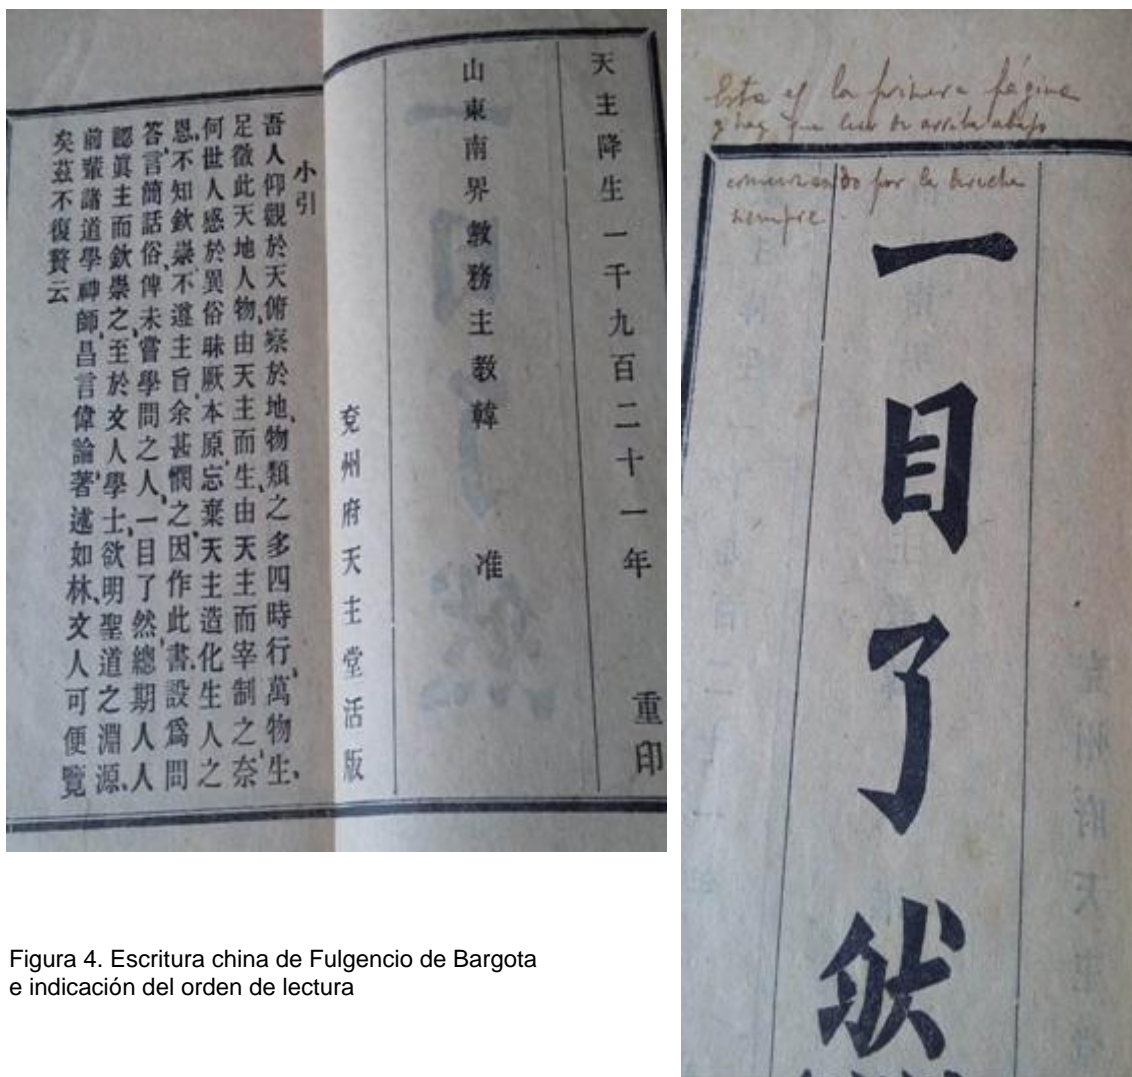 天主降生一千九百二十一年 重印
山東南界教務主教韓 准
兗州府天主堂活版
小引
吾人仰觀於天、俯察於地、物類之多四時行、萬物生、
足徵此天地人物、由天主而生、由天主而宰制之奈
何世人感於異俗昧厥本原、忘棄天主造化生人之
恩、不知欽崇、不遵主旨、余甚憫之、因作此書、設爲問
答、言簡話俗、俾未嘗學問之人、一目了然、總期人人
認眞主而欽崇之、至於文人學士、欲明聖道之淵源、
前輩諸道學神師、昌言偉論、著述如林、文人可便覽
矣茲不復贅云
Esta es la primera página
y hay que leer de arriba abajo
comenzando por la derecha
siempre.
一目了然
Figura 4. Escritura china de Fulgencio de Bargota
e indicación del orden de lectura